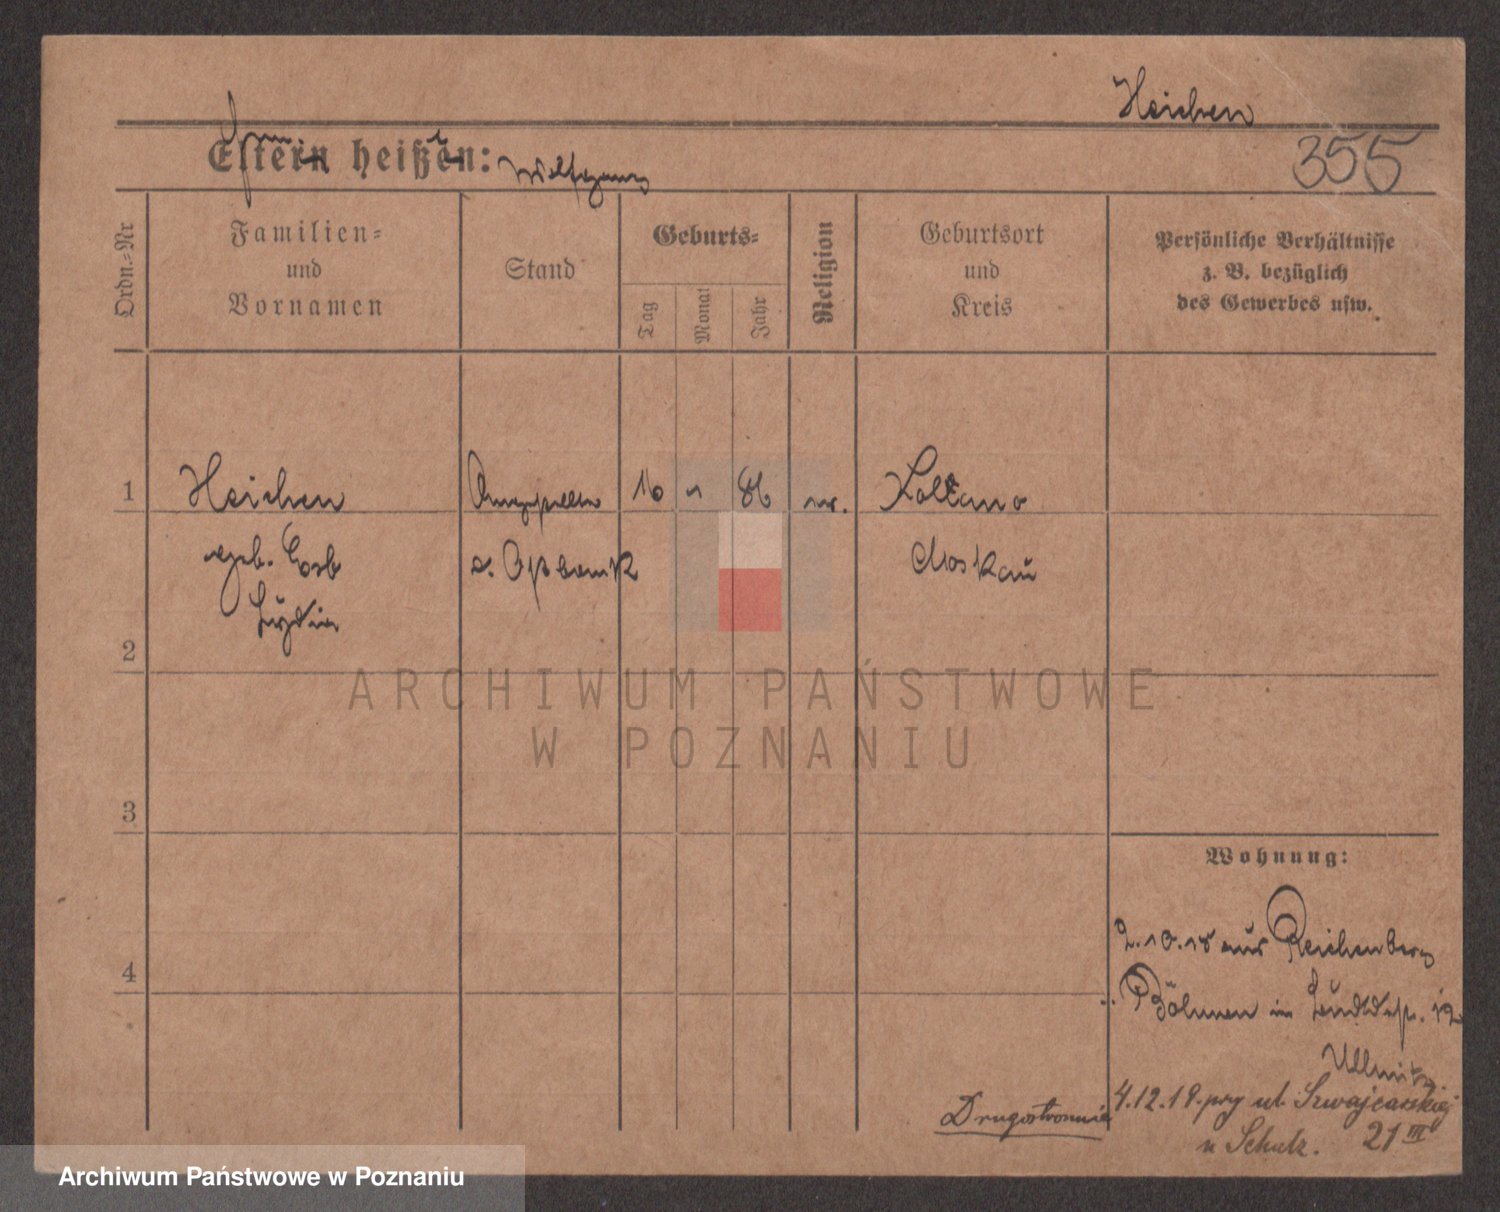 Heichen
355
Eltern heißen:
Ordn.-Nr
Familien-
und
Vornamen
Stand
Geburts-
Tag
Monat
Jahr
Religion
Geburtsort
und
Kreis
Persönliche Verhältnisse
z. B. bezüglich
des Gewerbes usw.
1
Heichen
16
86
geb.
Moskau
2
ARCHIWUM PAŃSTWOWE
W POZNANIU
3
Wohnung:
4
2.10.18 aus Reichenberg
Böhmen in
Drugostronnie
4.12.19. przy ul. Szwajcarskiej
u Schulz. 21 III
Archiwum Państwowe w Poznaniu